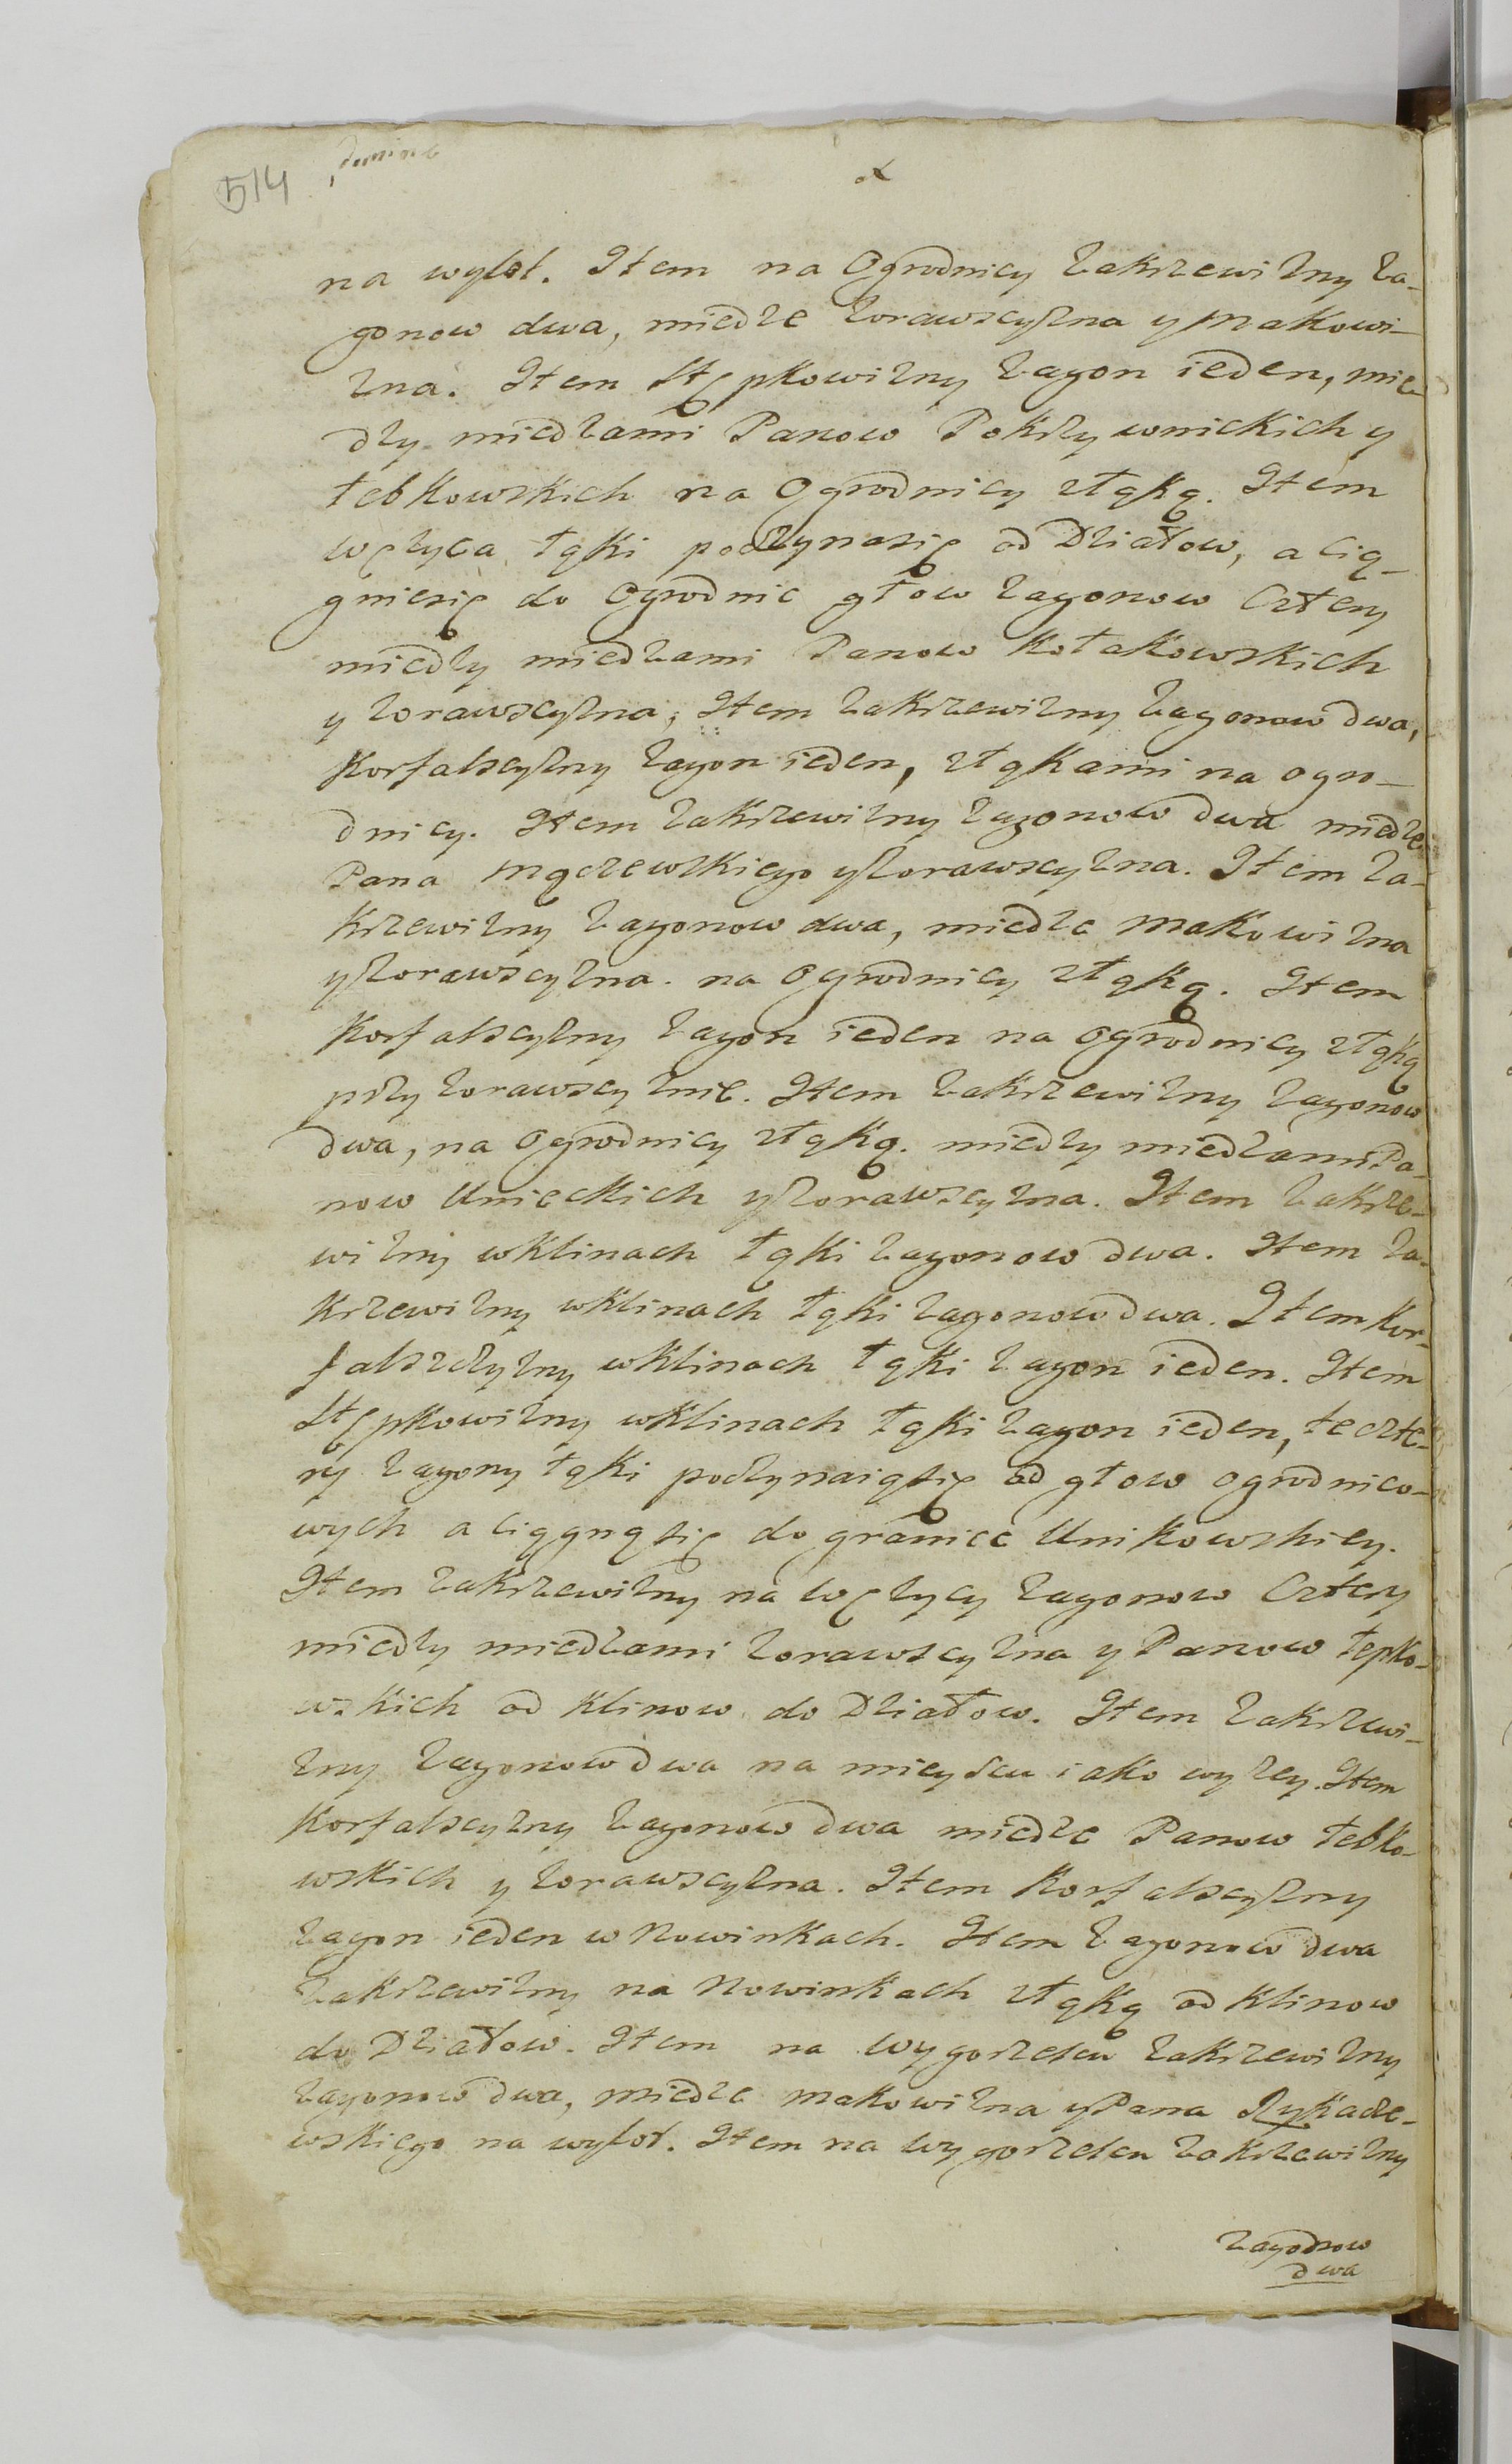 514
na wylot. Item na Ogrodnicy Zakrzewizny Za-
gonow dwa, miedze Zorawscyzna y Makowi-
zna. Item Stępkowizny Zagon ieden, mie-
dzy miedzami Panow Pokrzywnickich y
Łebkowskich na Ogrodnicy złąką. Item
Węzyca łąki poczynasię od Działow, a cią-
gniesię do Ogrodnic głow Zagonow Cztery
miedzy miedzami Panow Kołakowskich
y Zorawscyzna, Item Zakrzewizny Zagonow dwa,
Korfalscyzny Zagon ieden, złąkami na ogro-
dnicy. Item Zakrzewizny Zagonow dwa miedze
Pana Mączewskiego y Zorawscyzna. Item Za-
krzewizny Zagonow dwa, miedze Makowizna
y Zorawscyzna. na Ogrodnicy złąką. Item
Korfalscyzny Zagon ieden na Ogrodnicy złąką
przy Zorawscyznie. Item Zakrzewizny Zagonow
dwa, na Ogrodnicy złąką. miedzy miedzami Pa-
now Unieckich y Zorawscyzna. Item Zakrze-
wizny wklinach łąki Zagonow dwa. Item Za-
krzewizny wklinach łąki Zagonow dwa. Item Kor-
falszczyzny wklinach łąki Zagon ieden. Item
Stępkowizny wklinach łąki Zagon ieden, te czte-
ry Zagony łąki poczynaiąsię od głow ogrodnico-
wych a ciągnąsię do granice Unikowskiey.
Item Zakrzewizny na Węzycy Zagonow Cztery
miedzy miedzami Zorawscyzna y Panow Łepko-
wskich od Klinow do Działow. Item Zakrzewi-
zny Zagonow dwa na mieyscu iako wyzey. Item
Korfalscyzny Zagonow dwa miedze Panow Łebko-
wskich y Zorawscyzna. Item Korfalscyzny
Zagon ieden w Nowinkach. Item Zagonow dwa
Zakrzewizny na Nowinkach złąką od Klinow
do Działow. Item na Wygorzelcu Zakrzewizny
Zagonow dwa, miedze Makowizna y Pana Rykacze-
wskiego na wylot. Item na Wygorzelcu Zakrzewizny
Zagonow
dwa